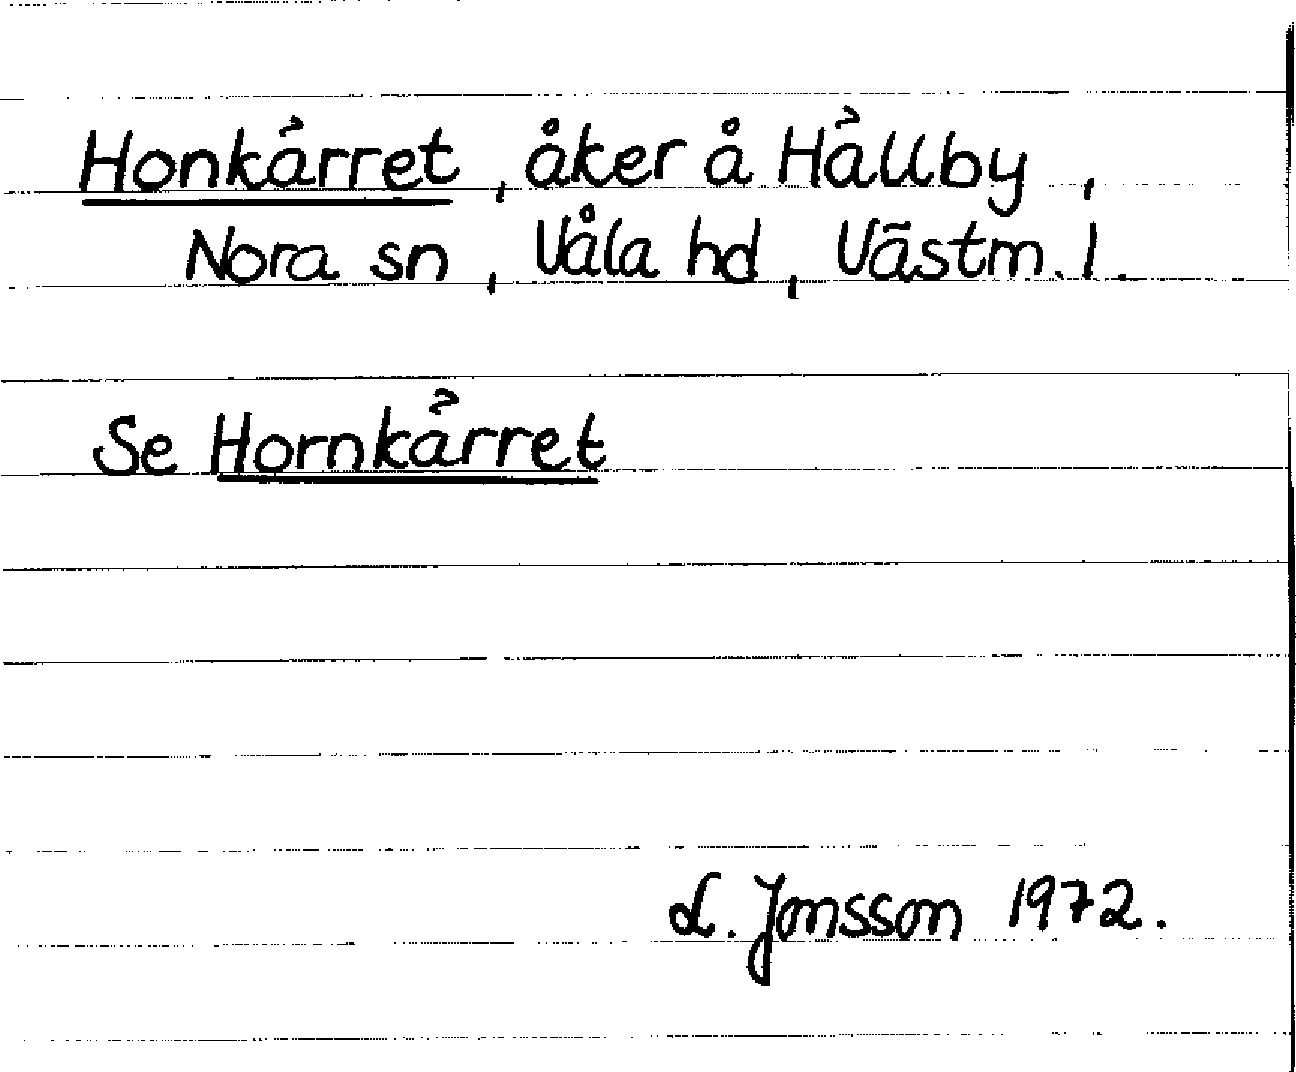 Honkärret, åker å Hällby,
Nora sn, Våla hd, Västm. l.
Se Hornkärret
L. Jonsson 1972.